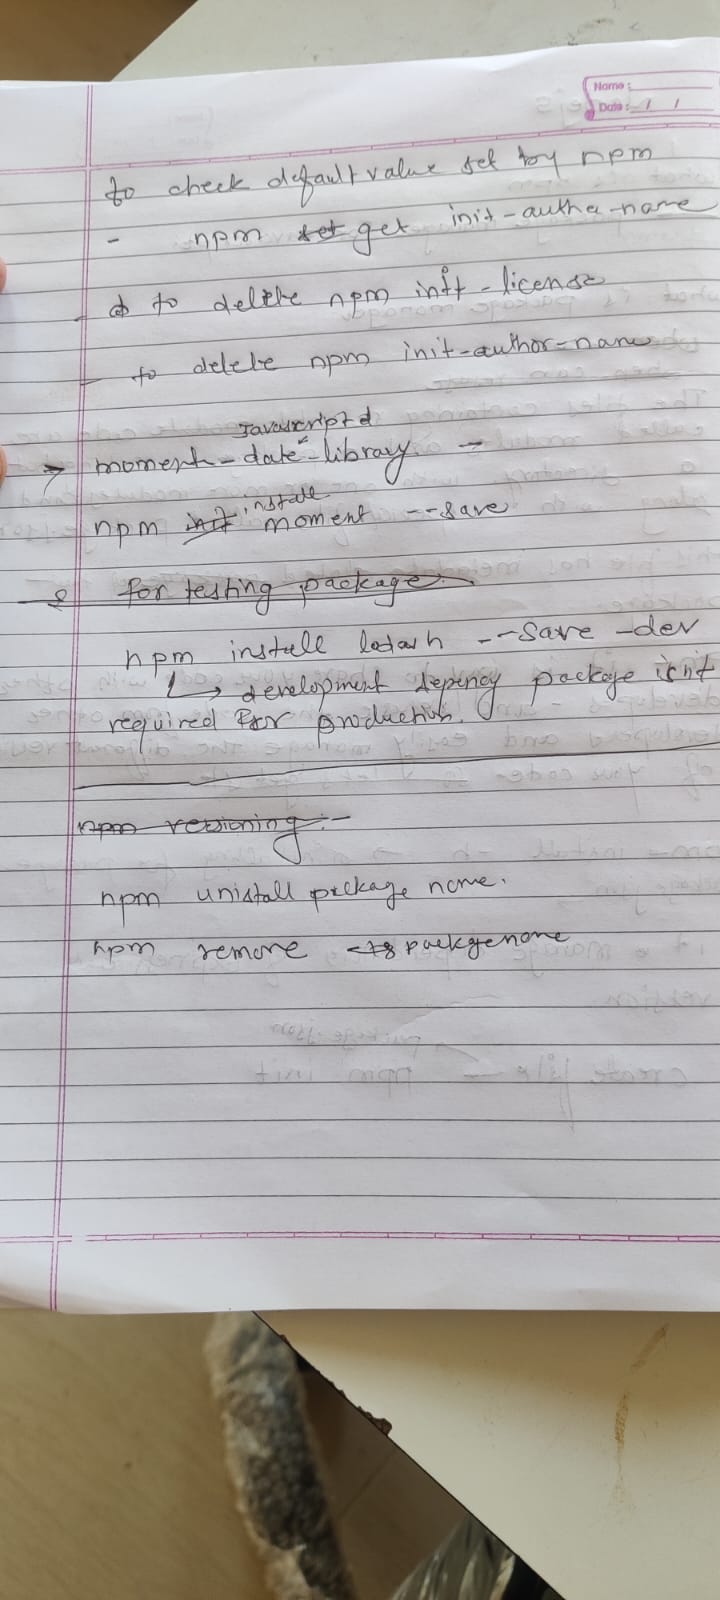 Name :
Date : / /
to check default value set by npm
- npm set get init-autho-name
- to delete npm init-license
- to delete npm init-author-name
Javascript d
→ moment-date-library →
install
npm init moment --save
for testing package
npm install lodash --save -dev
↳ development depency package isnt
required for production.
npm versioning :-
npm unistall package name.
npm remove packgename